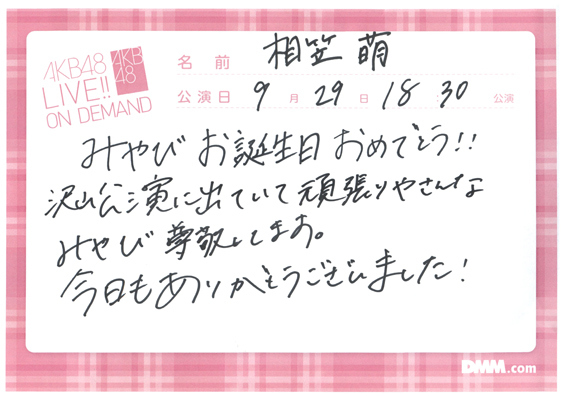 AKB48
LIVE!!
ON DEMAND
AKB
48
名前 相笠萌
公演日 9月29日 18 30 公演
みやび お誕生日 おめでとう!!
沢山公演に出ていて頑張りやさんな
みやび 尊敬してます。
今日もありがとうございました!
DMM.com